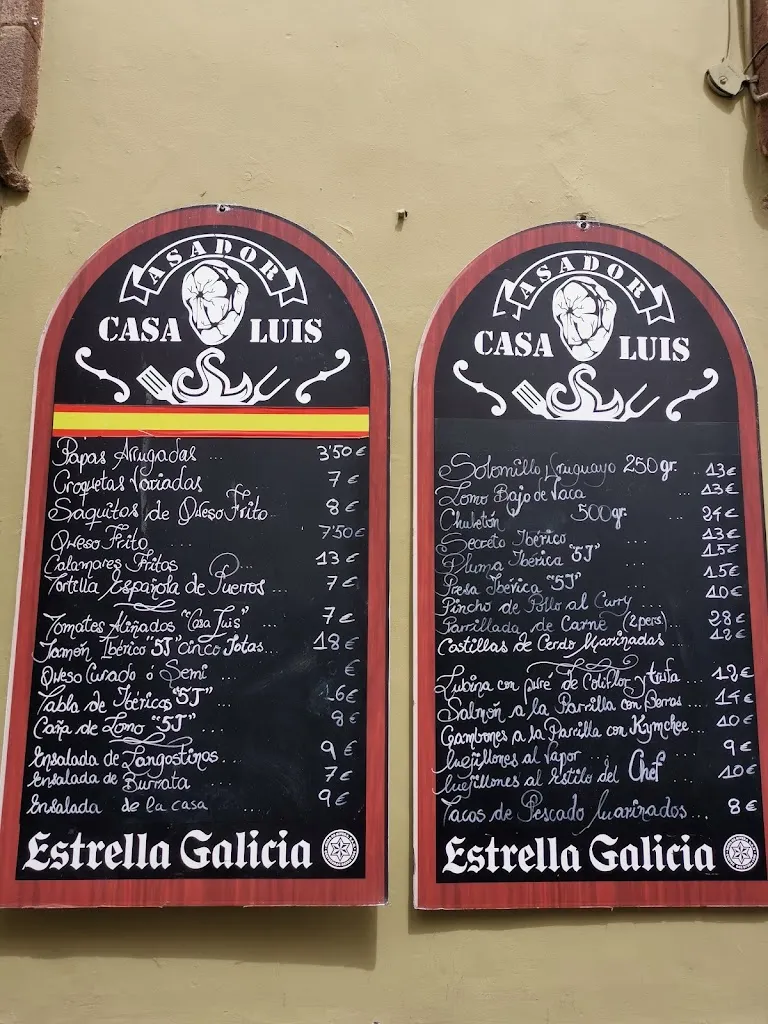 ASADOR
CASA LUIS
Papas Arrugadas ... 3'50€
Croquetas Variadas 7€
Saquitos de Queso Frito 8€
Queso Frito 7'50€
Calamares Fritos ... 13€
Tortilla Española de Puerros ... 7€
Tomates Aliñados "Casa Luis" 7€
Jamón Ibérico "5J" cinco Jotas... 18€
Queso Curado ó Semi €
Tabla de Ibéricos "5J" 16€
Caña de Lomo "5J" 8€
Ensalada de Langostinos ... 9€
Ensalada de Burrata 7€
Ensalada de la casa ... 9€
Estrella Galicia
ASADOR
CASA LUIS
Solomillo Uruguayo 250gr. .. 13€
Lomo Bajo de Vaca ... 13€
Chuletón 500gr. ... 24€
Secreto Ibérico .... 13€
Pluma Ibérica "5J" 15€
Presa Ibérica "5J" .... 15€
Pincho de Pollo al Curry .... 10€
Parrillada de Carne (2pers).. 28€
Costillas de Cerdo Marinadas 12€
Lubina con puré de Coliflor y trufa 12€
Salmón a la Parrilla con Berros 14€
Gambones a la Parrilla con Kymchee.. 10€
Mejillones al Vapor ... 9€
Mejillones al Estilo del Chef .. 10€
Tacos de Pescado Marinados... 8€
Estrella Galicia